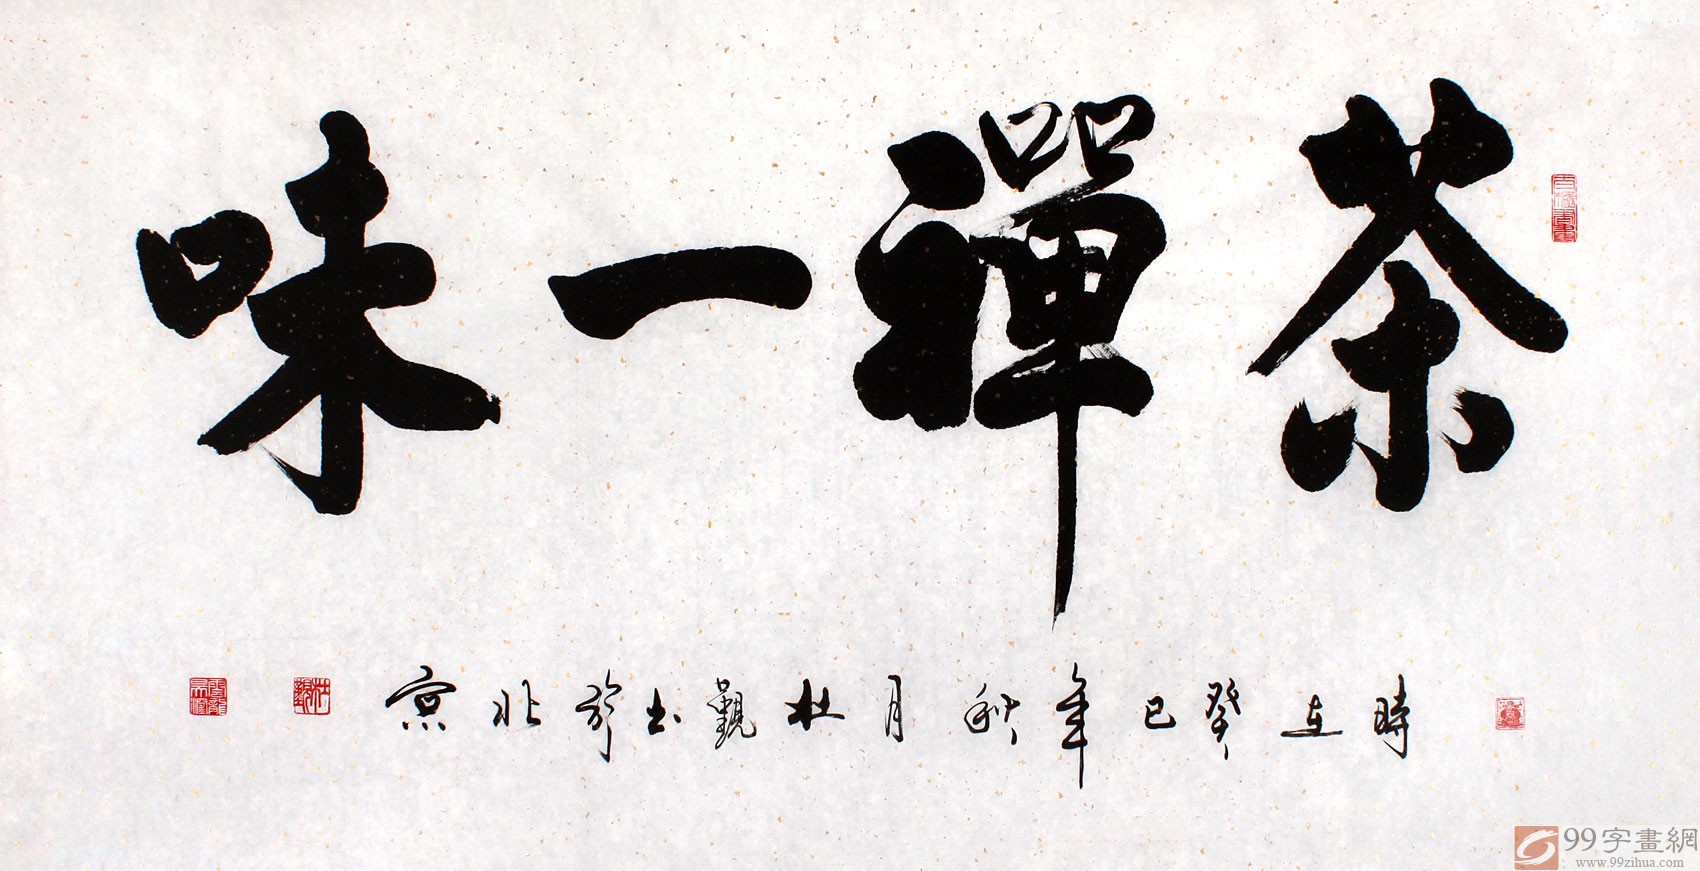 茶禪一味
時在癸巳年秋月杜觀書於北京
99字畫網
www.99zihua.com